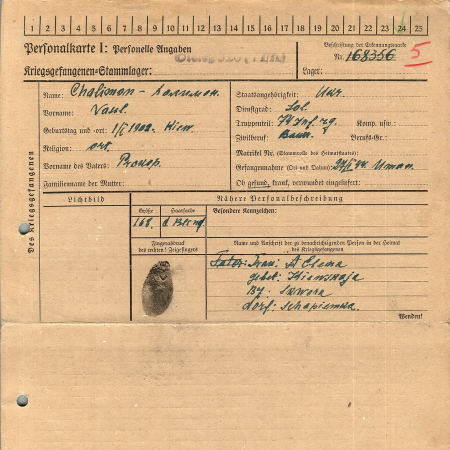 1 2 3 4 5 6 7 8 9 10 11 12 13 14 15 16 17 18 19 20 21 22 23 24 25
Personalkarte I: Personelle Angaben
Kriegsgefangenen-Stammlager:
Beschriftung der Erkennungsmarke
Nr. 168356 5
Lager:
Des Kriegsgefangenen
Name: Chalimon - Халимон.
Vorname: Vasil.
Geburtstag und -ort: 1/I 1902. Kiew.
Religion: ort.
Vorname des Vaters: Prokop.
Familienname der Mutter:
Staatsangehörigkeit: Ukr.
Dienstgrad: Sol.
Truppenteil: 74 Inf. rg. Komp. usw.:
Zivilberuf: Bauer Berufs-Gr.:
Matrikel Nr. (Stammrolle des Heimatstaates):
Gefangennahme (Ort und Datum): Uman.
Ob gesund, krank, verwundet eingeliefert:
Lichtbild
Nähere Personalbeschreibung
Größe
Haarfarbe
Besondere Kennzeichen:
168.
Fingerabdruck
des rechten! Zeigefingers
Name und Anschrift der zu benachrichtigenden Person in der Heimat
des Kriegsgefangenen
Frau: Elena
gebet: Kiewskaja
Skwora
dorf:
Wenden!